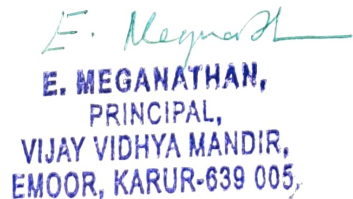 E. Meganath
E. MEGANATHAN,
PRINCIPAL,
VIJAY VIDHYA MANDIR,
EMOOR, KARUR-639 005,